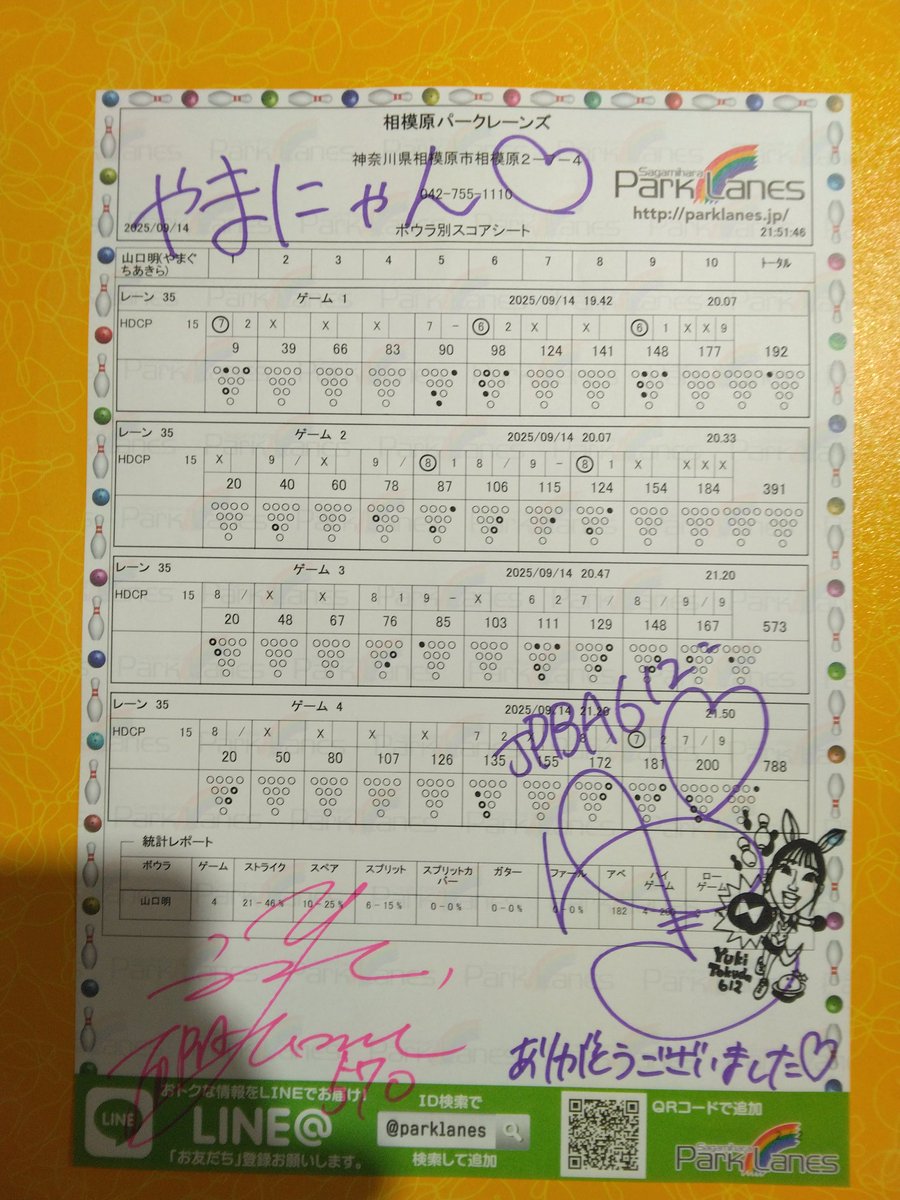 相模原パークレーンズ
神奈川県相模原市相模原2-7-4
042-755-1110
やまにゃん♡
Sagamihara
Park Lanes
http://parklanes.jp/
2025/09/14 ボウラ別スコアシート 21:51:46
山口明(やまぐちあきら) 1 2 3 4 5 6 7 8 9 10 トータル
レーン 35 ゲーム 1 2025/09/14 19.42 20.07
HDCP 15 ⑦ 2 X X X 7 - ⑥ 2 X X ⑥ 1 X X 9
9 39 66 83 90 98 124 141 148 177 192
レーン 35 ゲーム 2 2025/09/14 20.07 20.33
HDCP 15 X 9 / X 9 / ⑧ 1 8 / 9 - ⑧ 1 X X X X
20 40 60 78 87 106 115 124 154 184 391
レーン 35 ゲーム 3 2025/09/14 20.47 21.20
HDCP 15 8 / X X 8 1 9 - X 6 2 7 / 8 / 9 / 9
20 48 67 76 85 103 111 129 148 167 573
レーン 35 ゲーム 4 2025/09/14 21.20 21.50
HDCP 15 8 / X X X X 7 2 8 ⑦ 2 7 / 9
20 50 80 107 126 135 155 172 181 200 788
JPBA612
統計レポート
ボウラ ゲーム ストライク スペア スプリット スプリットカバー ガター ファール アベ ハイゲーム ローゲーム
山口明 4 21-46% 10-25% 6-15% 0-0% 0-0% 0-0% 182
Yuki
Tokuda
612
570
ありがとうございました♡
おトクな情報をLINEでお届け!
LINE
LINE@
「お友だち」登録お願いします。
ID検索で
@parklanes
検索して追加
QRコードで追加
Sagamihara
Park Lanes